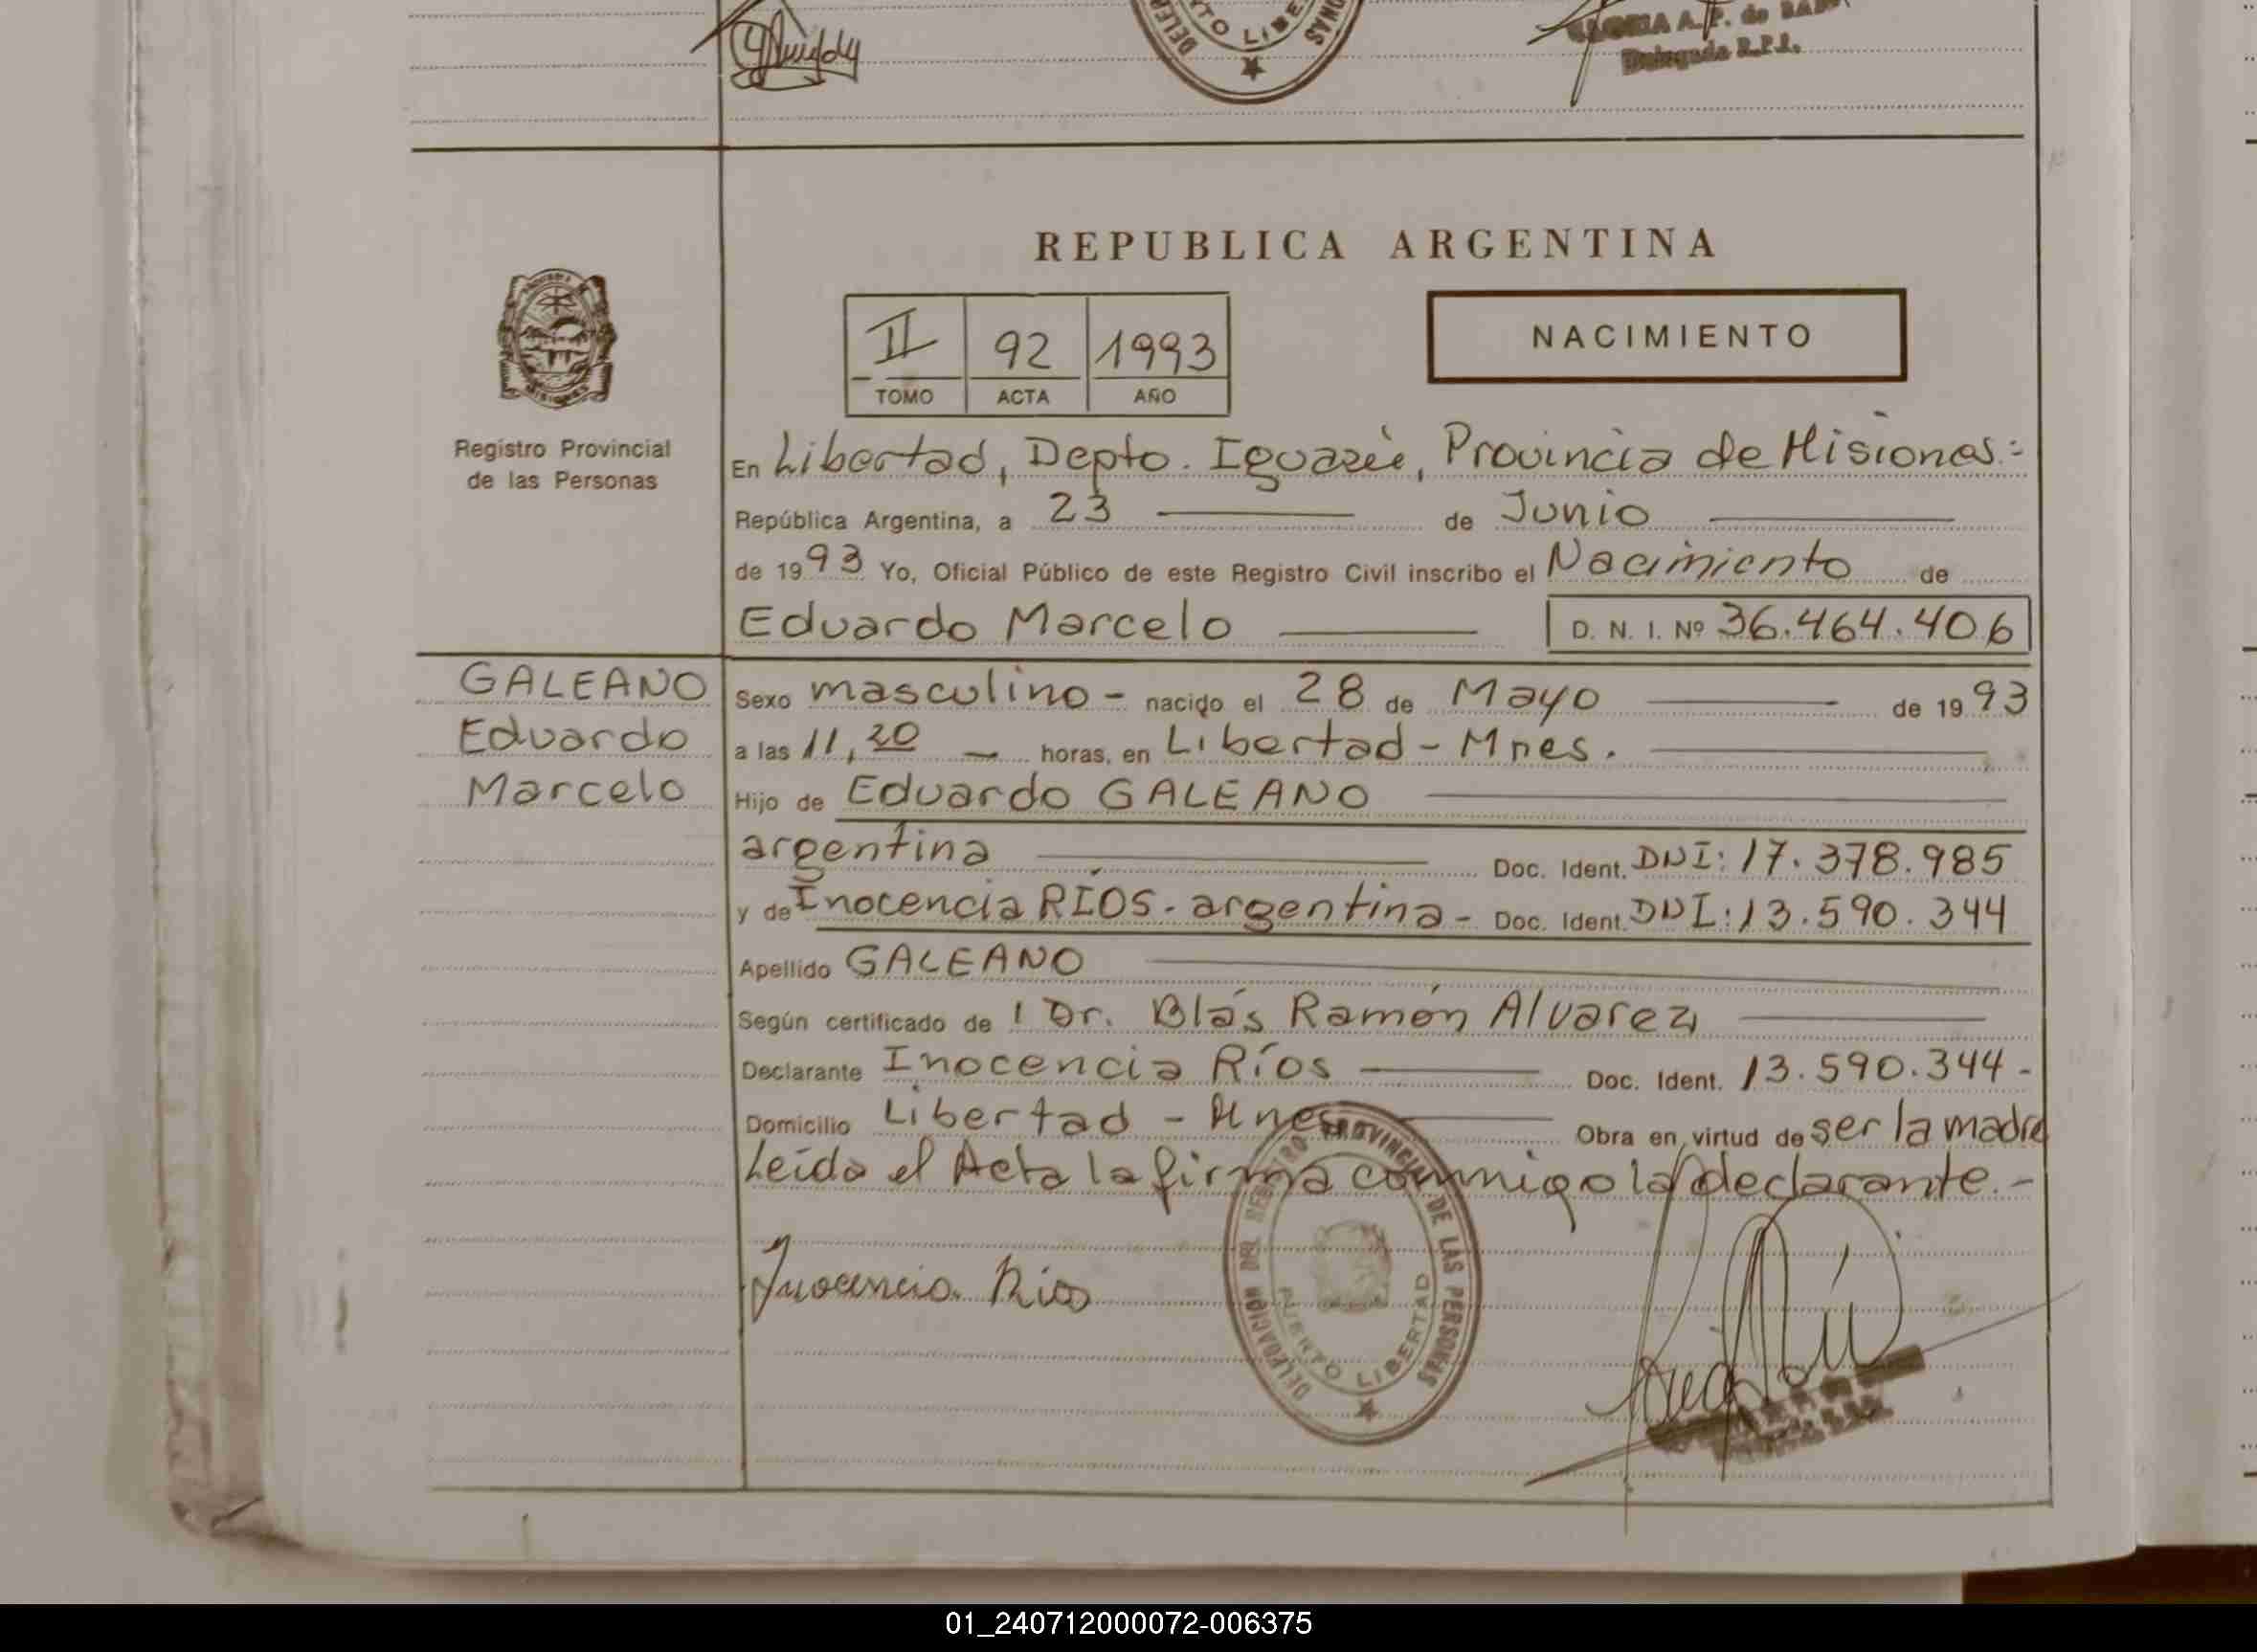 DELE TO LIBE ONAS
GLORIA A. P. de
Delegada R.P.P.
REPUBLICA ARGENTINA
II 92 1993
TOMO ACTA AÑO
NACIMIENTO
MISIONES
Registro Provincial
de las Personas
En Libertad, Depto. Iguazú, Provincia de Misiones.-
República Argentina, a 23 de Junio
de 1993 Yo, Oficial Público de este Registro Civil inscribo el Nacimiento de
Eduardo Marcelo D. N. I. Nº 36.464.406
GALEANO
Eduardo
Marcelo
Sexo masculino - nacido el 28 de Mayo de 1993
a las 11,20 horas, en Libertad - Mnes.
Hijo de Eduardo GALEANO
argentina Doc. Ident. DNI: 17.378.985
y de Inocencia RÍOS - argentina - Doc. Ident. DNI: 13.590.344
Apellido GALEANO
Según certificado de l Dr. Blás Ramón Alvarez
Declarante Inocencia Ríos Doc. Ident. 13.590.344 -
Domicilio Libertad - Mnes Obra en virtud de ser la madre
Leída el Acta la firma conmigo la declarante.-
Inocencia Rios
DELEGACION DEL REGISTRO PROVINCIAL DE LAS PERSONAS
PUERTO LIBERTAD
01_240712000072-006375